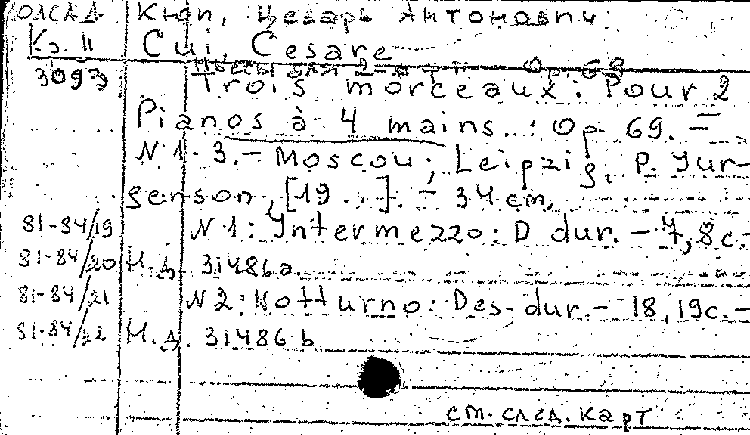 ОЛСАД Кюи, Цезарь Антонович.
Кз. II Cui, Cesare
Пьесы для 2-х Op. 69
3093 Trois morceaux: Pour 2
Pianos à 4 mains. : Op 69. =
N 1-3. - Moscou; Leipzig, P. Jur-
genson, [19 . .]. - 34 cm.
81-84/19 N 1: Intermezzo: D dur. - 7,8 c. -
81-84/20 Н.д. 31486a.
81-84/21 N 2: Notturno: Des-dur. - 18,19 c. -
81-84/22 Н.д. 31486 b
см. след. карт